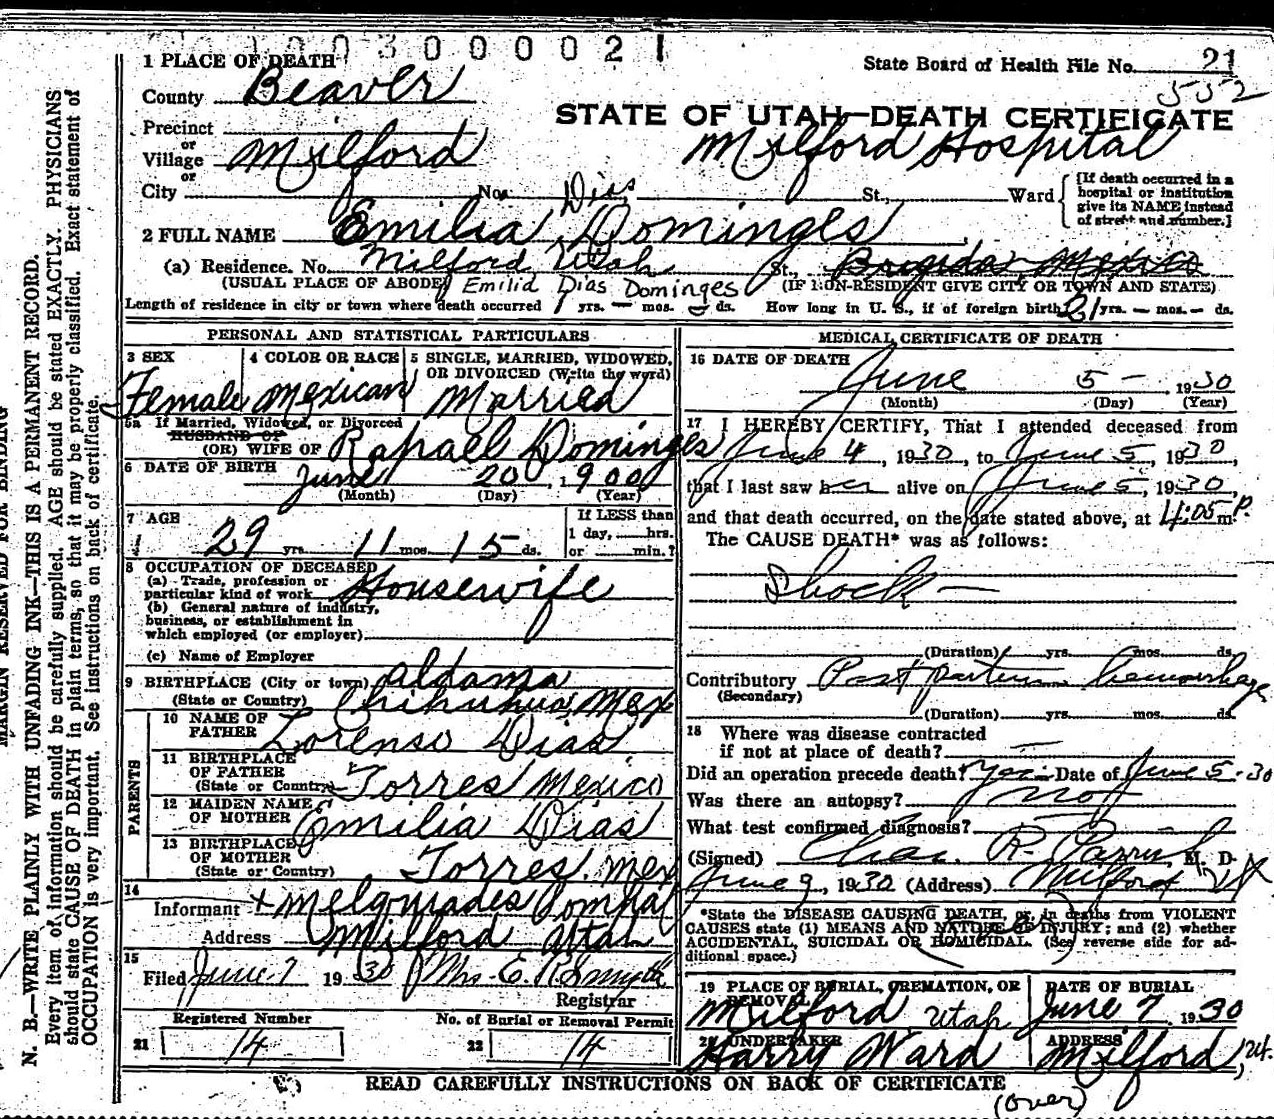 1000300021
1 PLACE OF DEATH
State Board of Health File No. 21
552
County Beaver
STATE OF UTAH—DEATH CERTIFICATE
Precinct
or
Village Milford
Milford Hospital
or
City No. St., Ward
[If death occurred in a hospital or institution give its NAME instead of street and number.]
Dias
2 FULL NAME Emilia Dominges
(a) Residence. No. Milford, Utah St., Mexico
(USUAL PLACE OF ABODE) Emilia Dias Dominges (IF NON-RESIDENT GIVE CITY OR TOWN AND STATE)
Length of residence in city or town where death occurred 1 yrs. — mos. ds. How long in U. S., if of foreign birth 21 yrs. — mos. — ds.
PERSONAL AND STATISTICAL PARTICULARS
3 SEX Female
4 COLOR OR RACE Mexican
5 SINGLE, MARRIED, WIDOWED, OR DIVORCED (Write the word) Married
5a If Married, Widowed, or Divorced
HUSBAND OF
(OR) WIFE OF Rafael Dominges
6 DATE OF BIRTH June 20 1900
(Month) (Day) (Year)
7 AGE 29 yrs. 11 mos. 15 ds.
If LESS than 1 day, hrs. or min.?
8 OCCUPATION OF DECEASED
(a) Trade, profession or particular kind of work Housewife
(b) General nature of industry, business, or establishment in which employed (or employer)
(c) Name of Employer
9 BIRTHPLACE (City or town) Aldama
(State or Country) Chihuahua, Mex
PARENTS
10 NAME OF FATHER Lorenso Dias
11 BIRTHPLACE OF FATHER (State or Country) Torres Mexico
12 MAIDEN NAME OF MOTHER Emilia Dias
13 BIRTHPLACE OF MOTHER (State or Country) Torres, Mex
14
Informant + Melquiades
Address Milford Utah
15
Filed June 7 1930 Mrs. E. R. Smyth
Registrar
Registered Number
No. of Burial or Removal Permit
21 14
22 14
MEDICAL CERTIFICATE OF DEATH
16 DATE OF DEATH
June 5 - 1930
(Month) (Day) (Year)
17 I HEREBY CERTIFY, That I attended deceased from
June 4, 1930, to June 5, 1930,
that I last saw her alive on June 5, 1930,
and that death occurred, on the date stated above, at 4:05 P.m.
The CAUSE DEATH* was as follows:
Shock —
(Duration) yrs. mos. ds.
Contributory Post partum hemorhage
(Secondary)
(Duration) yrs. mos. ds.
18 Where was disease contracted
if not at place of death? —
Did an operation precede death? Yes Date of June 5-30
Was there an autopsy? no
What test confirmed diagnosis? —
(Signed) Chas. R. Parrish M. D.
June 9, 1930 (Address) Milford Ut
*State the DISEASE CAUSING DEATH, or, in deaths from VIOLENT
CAUSES state (1) MEANS AND NATURE OF INJURY; and (2) whether
ACCIDENTAL, SUICIDAL OR HOMICIDAL. (See reverse side for ad-
ditional space.)
19 PLACE OF BURIAL, CREMATION, OR REMOVAL
Milford Utah
DATE OF BURIAL
June 7 1930
20 UNDERTAKER
Harry Ward
ADDRESS
Milford, Ut.
READ CAREFULLY INSTRUCTIONS ON BACK OF CERTIFICATE
(over)
MARGIN RESERVED FOR BINDING
N. B.—WRITE PLAINLY WITH UNFADING INK—THIS IS A PERMANENT RECORD.
Every item of information should be carefully supplied. AGE should be stated EXACTLY. PHYSICIANS
should state CAUSE OF DEATH in plain terms, so that it may be properly classified. Exact statement of
OCCUPATION is very important. See instructions on back of certificate.